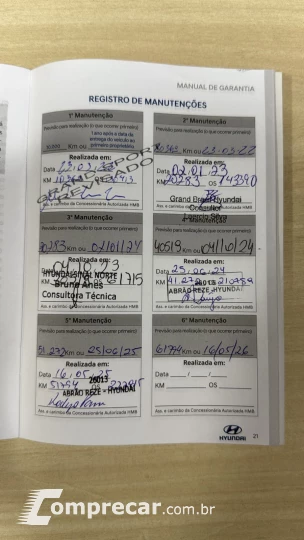 MANUAL DE GARANTIA
REGISTRO DE MANUTENÇÕES
1ª Manutenção
Previsão para realização (o que ocorrer primeiro)
1 ano após a data de
entrega do veículo ao
primeiro proprietário
10.000 Km ou
Realizada em:
Data
KM
OS
Ass. e carimbo da Concessionária Autorizada HMB
2ª Manutenção
Previsão para realização (o que ocorrer primeiro)
Km ou 23.03.22
Realizada em:
Data 02.01.23
KM 20283 OS 743390
Grand Brasil Hyundai
Consultor
Ass. e carimbo da Concessionária Autorizada HMB
3ª Manutenção
Previsão para realização (o que ocorrer primeiro)
30283 Km ou 02/01/24
Realizada em:
04.10.23
HYUNDAI SINAL NORTE
Bruna Anes
Consultora Técnica
Ass. e carimbo da Concessionária Autorizada HMB
4ª Manutenção
Previsão para realização (o que ocorrer primeiro)
40519 Km ou 04/10/24
Realizada em:
Data 25.06.24
KM 41.272 OS 210789
ABRÃO REZE HYUNDAI
Ass. e carimbo da Concessionária Autorizada HMB
5ª Manutenção
Previsão para realização (o que ocorrer primeiro)
51.272 Km ou 25/06/25
Realizada em:
Data 16.05.25
26013
KM 51794 OS
ABRÃO REZE - HYUNDAI
Ass. e carimbo da Concessionária Autorizada HMB
6ª Manutenção
Previsão para realização (o que ocorrer primeiro)
61794 Km ou 16/05/26
Realizada em:
Data ___/___/___
KM ______ OS ______
Ass. e carimbo da Concessionária Autorizada HMB
HYUNDAI
21
Comprecar.com.br